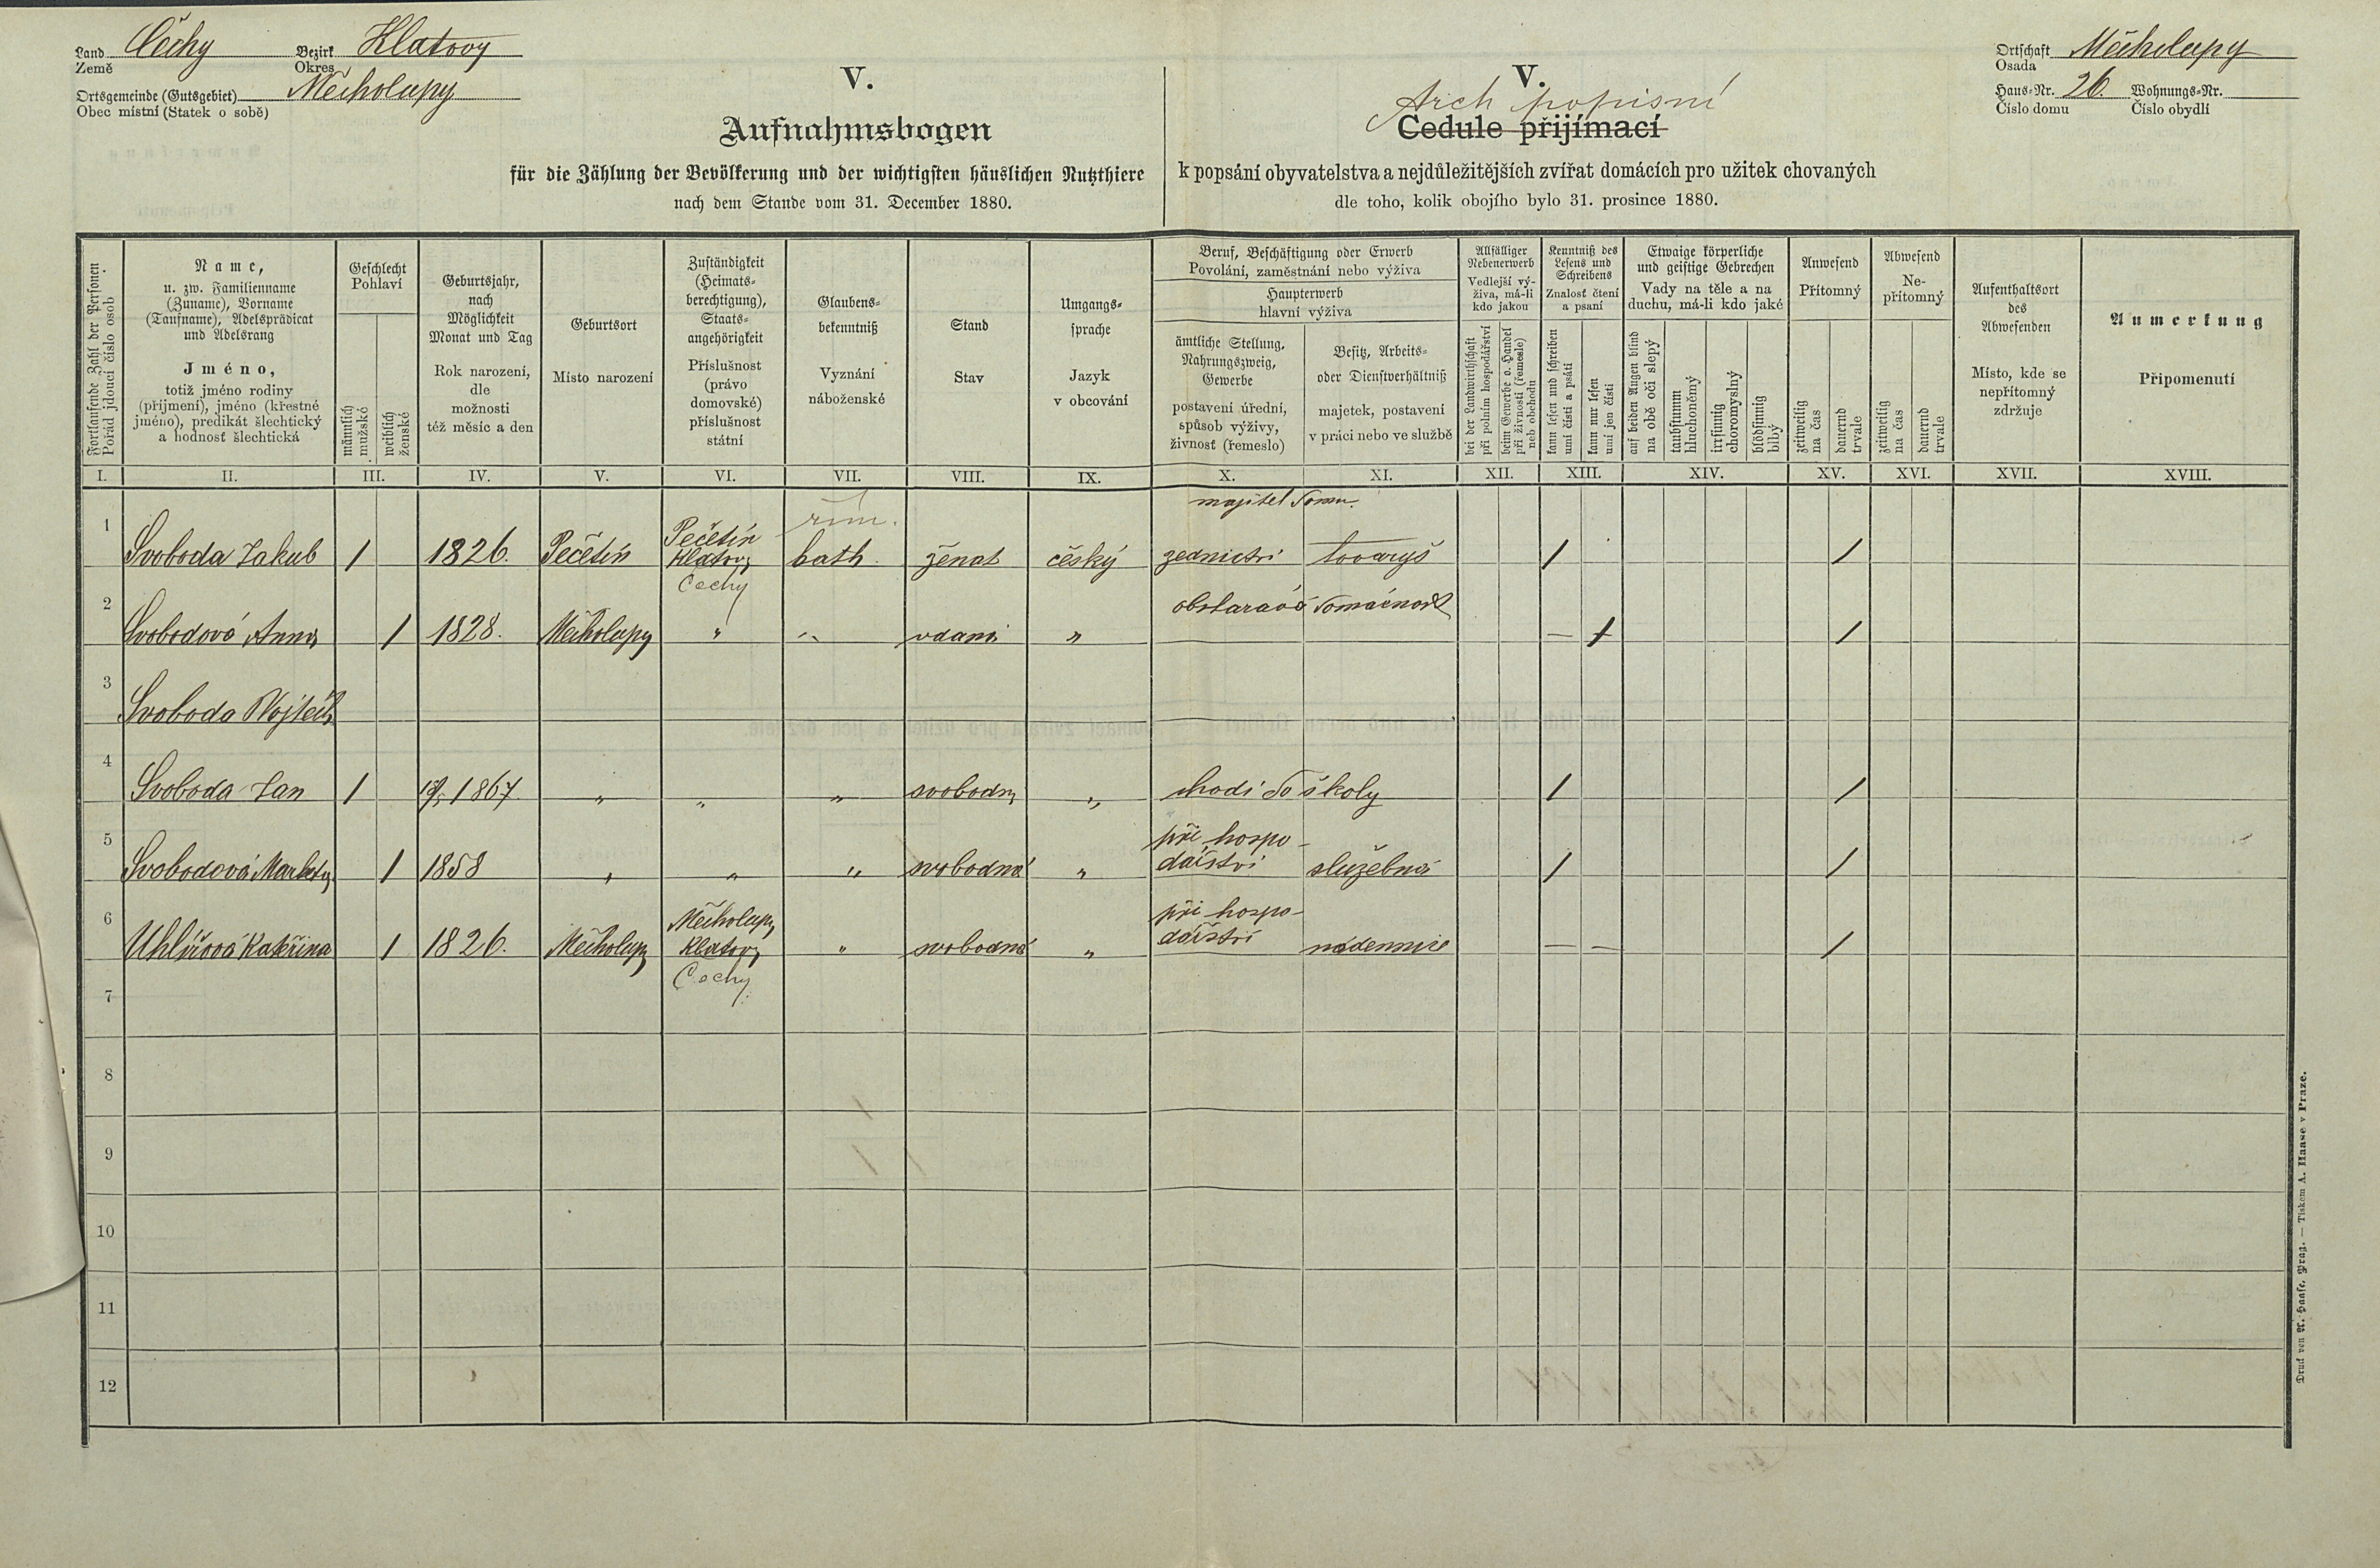 Land Čechy Bezirk Klatovy
Země Okres
Ortsgemeinde (Gutsgebiet) Měcholupy
Obec místní (Statek o sobě)
V.
Aufnahmsbogen
für die Zählung der Bevölkerung und der wichtigsten häuslichen Nutzthiere
nach dem Stande vom 31. December 1880.
V.
Arch popisní
Cedule přijímací
k popsání obyvatelstva a nejdůležitějších zvířat domácích pro užitek chovaných
dle toho, kolik obojího bylo 31. prosince 1880.
Ortschaft Měcholupy
Osada
Haus-Nr. 26. Wohnungs-Nr.
Číslo domu Číslo obydlí
Fortlaufende Zahl der Personen
Pořád jdoucí číslo osob
Name,
u. zw. Familienname
(Zuname), Vorname
(Taufname), Adelsprädicat
und Adelsrang
Jméno,
totiž jméno rodiny
(příjmení), jméno (křestné
jméno), predikát šlechtický
a hodnosť šlechtická
Geschlecht
Pohlaví
männlich
mužské
weiblich
ženské
Geburtsjahr,
nach
Möglichkeit
Monat und Tag
Rok narození,
dle
možnosti
též měsíc a den
Geburtsort
Místo narození
Zuständigkeit
(Heimats-
berechtigung),
Staats-
angehörigkeit
Příslušnost
(právo
domovské)
příslušnost
státní
Glaubens-
bekenntniß
Vyznání
náboženské
Stand
Stav
Umgangs-
sprache
Jazyk
v obcování
Beruf, Beschäftigung oder Erwerb
Povolání, zaměstnání nebo výživa
Haupterwerb
hlavní výživa
ämtliche Stellung,
Nahrungszweig,
Gewerbe
postavení úřední,
spůsob výživy,
živnosť (řemeslo)
Besitz, Arbeits-
oder Dienstverhältniß
majetek, postavení
v práci nebo ve službě
Allfälliger
Nebenerwerb
Vedlejší vý-
živa, má-li
kdo jakou
bei der Landwirthschaft
při polním hospodářství
beim Gewerbe o. Handel
při živnosti (řemesle)
neb obchodu
Kenntniß des
Lesens und
Schreibens
Znalosť čtení
a psaní
kann lesen und schreiben
umí čísti a psáti
kann nur lesen
umí jen čísti
Etwaige körperliche
und geistige Gebrechen
Vady na těle a na
duchu, má-li kdo jaké
auf beiden Augen blind
na obě oči slepý
taubstumm
hluchoněmý
irrsinnig
choromyslný
blödsinnig
blbý
Anwesend
Přítomný
zeitweilig
na čas
dauernd
trvale
Abwesend
Ne-
přítomný
zeitweilig
na čas
dauernd
trvale
Aufenthaltsort
des
Abwesenden
Místo, kde se
nepřítomný
zdržuje
Anmerkung
Připomenutí
I. II. III. IV. V. VI. VII. VIII. IX. X. XI. XII. XIII. XIV. XV. XVI. XVII. XVIII.
řím. majitel domu.
1 Pečetín
Svoboda Jakub 1 1826. Pečetín Klatovy kath. ženat český zednictví tovaryš 1 1
Čechy
2 obstarává domácnosť
Svobodová Anna 1 1828. Měcholupy " " vdaná " — 1 1
3
Svoboda Vojtěch
4
Svoboda Jan 1 1867. " " " svobodný " chodí do školy 1 1
5 při hospo-
Svobodová Markéta 1 1858 " " " svobodná " dářství služebná 1 1
6 Měcholupy při hospo-
Uhlířová Kateřina 1 1826. Měcholupy Klatovy " svobodná " dářství nádennice — — 1
Čechy
7
8
9
10
11
12
Druck von A. Haase, Prag. — Tiskem A. Haase v Praze.